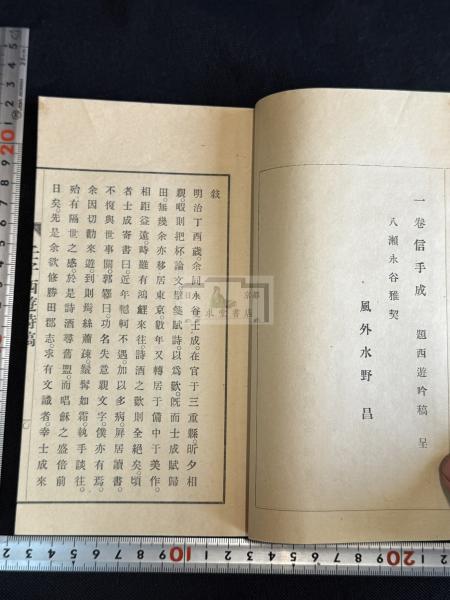 一卷信手成 題西遊吟稿 呈
八瀬永谷雅契
風外水野 昌
敍
明治丁酉歲。余同永谷士成。在官于三重縣。昕夕相
親。暇則把杯論文。擘箋賦詩。以爲歡。既而士成賦歸
田。無幾余亦移居東京。數年又轉居于備中于美作。
相距益遠。時雖有鴻鯉來往。詩酒之歡則全絕矣。頃
者士成寄書曰。近年轗軻不遇。加以多病。屛居讀書。
不復與世事關。郭驛曰。功名失意親文字。僕亦有焉。
余因切勸來遊。到則鬂絲蕭疎。鬚髯如霜。執手談往。
殆有隔世之感。於是詩酒尋舊盟。而唱龢之盛倍前
日矣。先是余欲修勝田郡志。求有文識者。幸士成來
壬子西遊詩稿